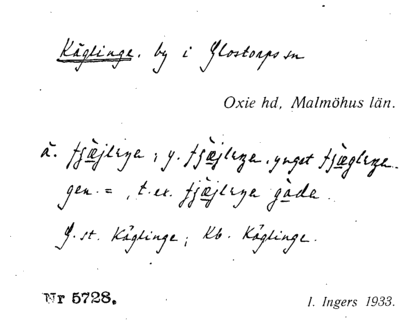 Käglinge. by i Glostorps sn
Oxie hd, Malmöhus län.
ä. fjæ̀jlɛŋa; y. fjæ̀jlɛŋa. yngst fjæ̀glɛŋa.
gen. = , t. ex. fjæ̀jlɛŋa gàda.
G. st. Käglinge; Kb. Käglinge.
Nr 5728.
I. Ingers 1933.